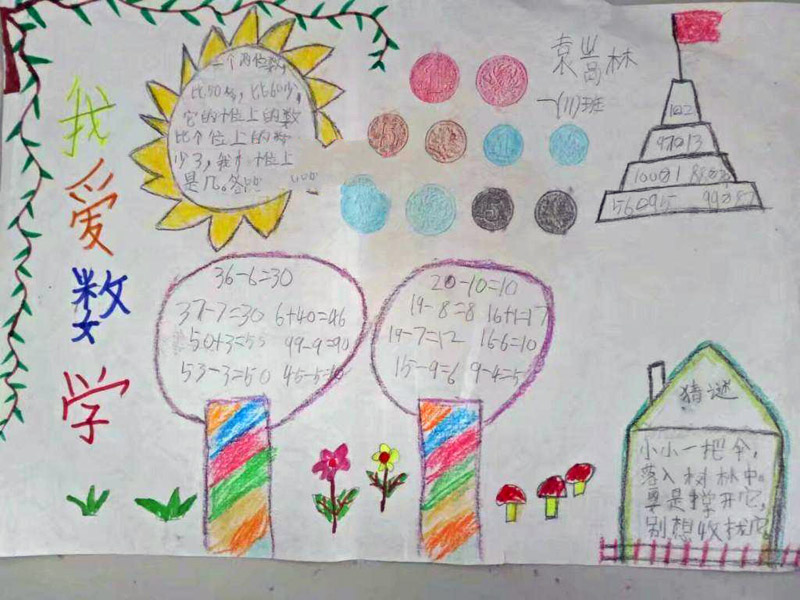 我爱数学
一个两位数,
比50多,比60少,
它的十位上的数
比个位上的数
少3,我十位上
是几。答
袁嵩林
一(11)班
102
97〇13
100〇1 88〇
56〇95 99〇87
36-6=30
37-7=30 6+40=46
50+3=53 99-9=90
53-3=50 45-5=
20-10=10
19-8=8 16+1=17
19-7=12 16-6=10
15-9=6 9-4=5
猜谜
小小一把伞,
落入树林中。
要是撑开它,
别想收拢它。